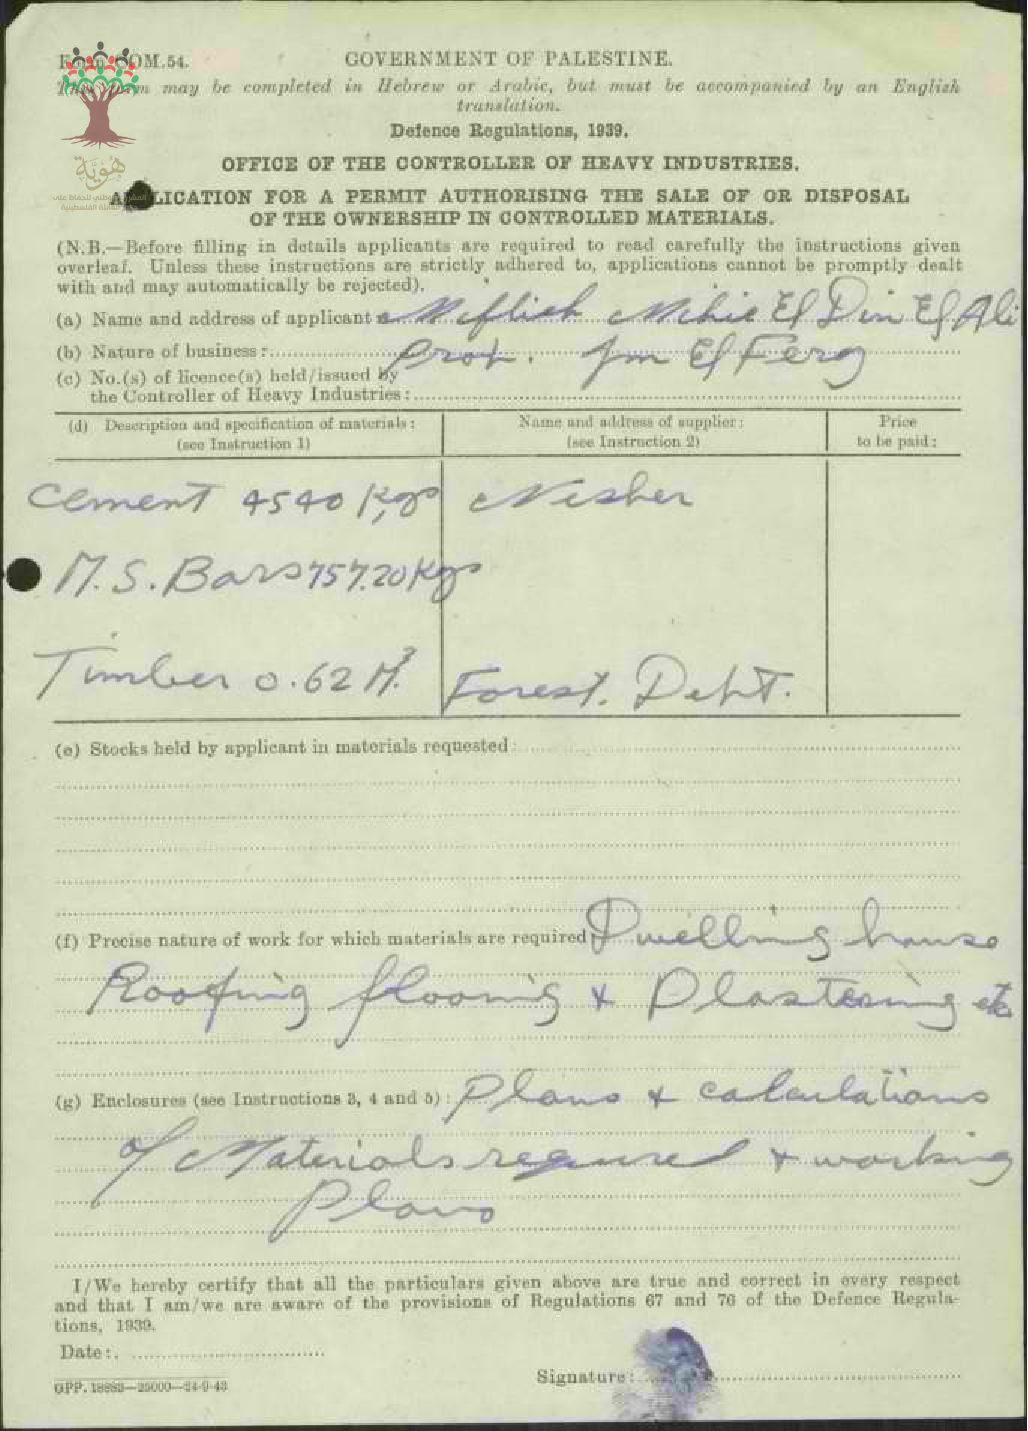 Form COM.54.
GOVERNMENT OF PALESTINE.
This form may be completed in Hebrew or Arabic, but must be accompanied by an English
translation.
Defence Regulations, 1939.
OFFICE OF THE CONTROLLER OF HEAVY INDUSTRIES.
هوية
APPLICATION FOR A PERMIT AUTHORISING THE SALE OF OR DISPOSAL
OF THE OWNERSHIP IN CONTROLLED MATERIALS.
(N.B.—Before filling in details applicants are required to read carefully the instructions given
overleaf. Unless these instructions are strictly adhered to, applications cannot be promptly dealt
with and may automatically be rejected).
(a) Name and address of applicant Miflieh Mehie El Din El Ali
(b) Nature of business: Prop. Im El Ferg
(c) No.(s) of licence(s) held/issued by
the Controller of Heavy Industries:
(d) Description and specification of materials: Name and address of supplier: Price
(see Instruction 1) (see Instruction 2) to be paid:
Cement 4540 Kgs Nesher
M.S. Bars 757.20 Kgs
Timber 0.62 M³. Forest. Debt.
(e) Stocks held by applicant in materials requested:
(f) Precise nature of work for which materials are required: Dwelling house
Roofing flooring & Plastering etc
(g) Enclosures (see Instructions 3, 4 and 5): Plans & calculations
of Materials required & working
Plans
I/We hereby certify that all the particulars given above are true and correct in every respect
and that I am/we are aware of the provisions of Regulations 67 and 76 of the Defence Regula-
tions, 1939.
Date:
Signature:
GPP. 18883—25000—24-9-43